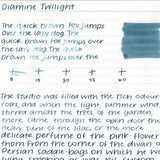 Diamine Twilight
The quick brown fox jumps
over the lazy dog. The
quick brown fox jumps over
the lazy dog. The quick
brown fox jumps
The studio was filled with the rich odour
roses, and when the light summer wind
stirred amidst the trees of the garden,
there came through the open door the
heavy scent of the lilac, or the more
delicate perfume of the pink-flower
thorn From the corner of the divan of
Persian saddle-bags on which he w
lying, smoking as was his custom